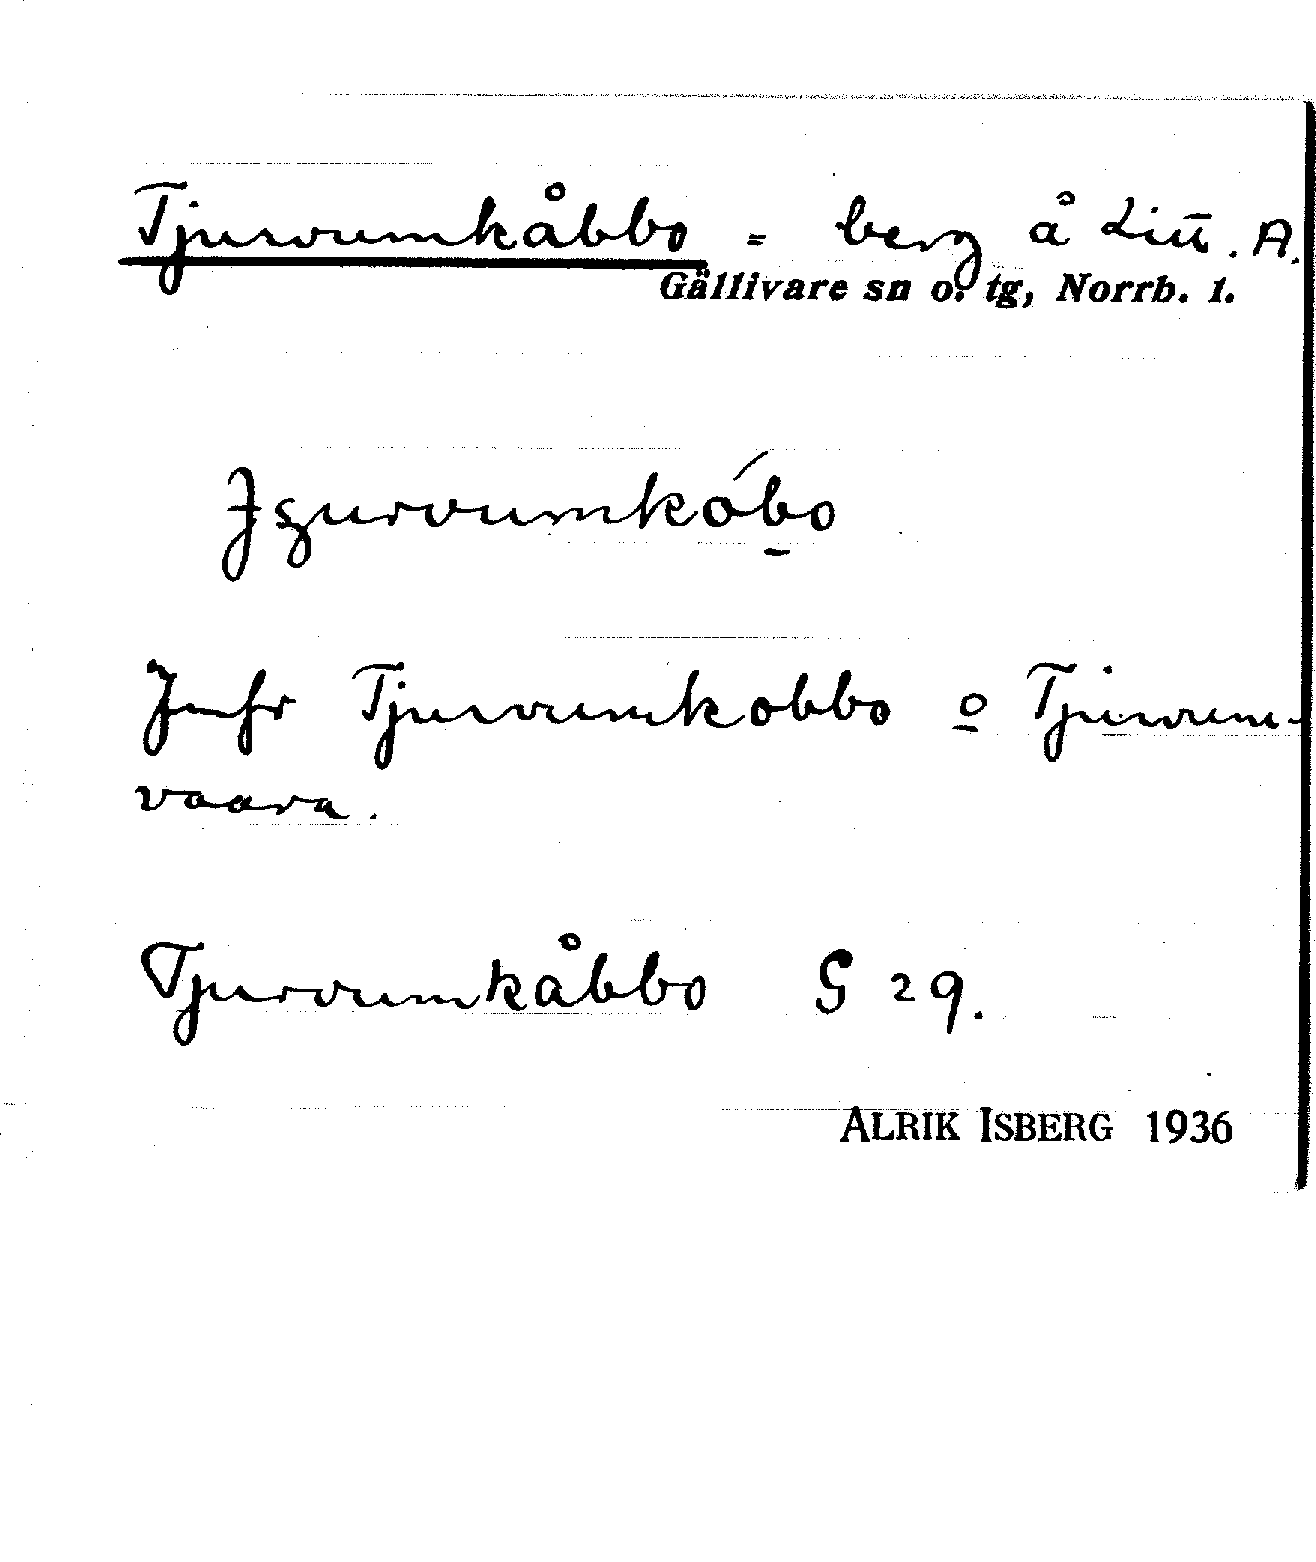 Tjurvumkåbbo = berg å Litt. A.
Gällivare sn o. tg, Norrb. l.
Jfr Tjurvumkobbo o Tjurvum-
vaara.
Tjurvumkåbbo G 29.
ALRIK ISBERG 1936